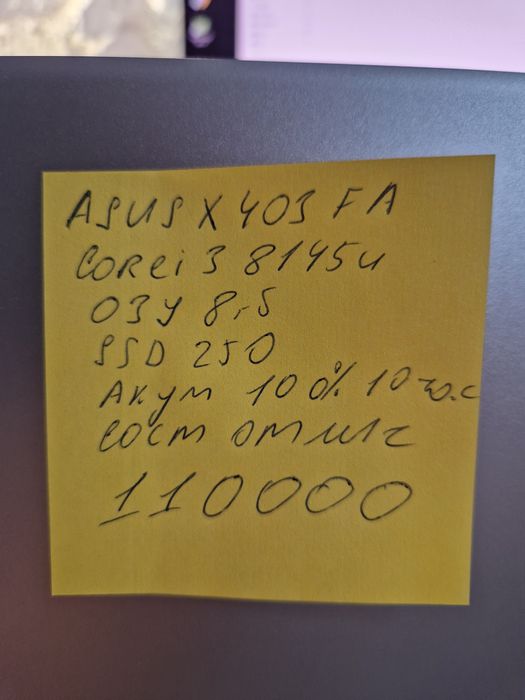 ASUS X403FA
Corei3 8145u
ОЗУ 8,5
SSD 250
Акум 100% 10
сост отлич
110000